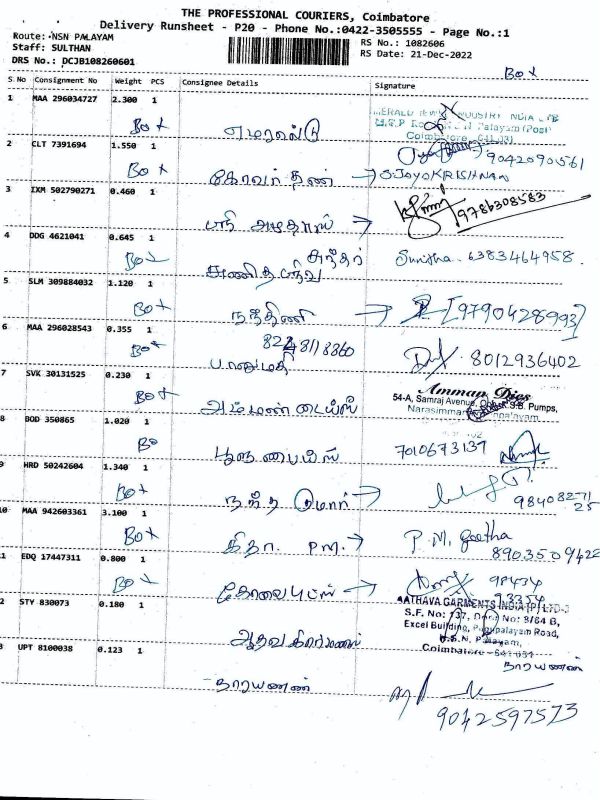 THE PROFESSIONAL COURIERS, Coimbatore
Delivery Runsheet - P20 - Phone No.:0422-3505555 - Page No.:1
Route: NSN PALAYAM
RS No.: 1082606
Staff: SULTHAN
RS Date: 21-Dec-2022
DRS No.: DCJB108260601
Box
S.No Consignment No Weight PCS Consignee Details Signature
1 MAA 296034727 2.300 1
Box எமரால்டு
Coimbatore - 641 031
2 CLT 7391694 1.550 1
9042090561
Box கோவர்தனன் → S.JAYAKRISHNAN
3 IXM 502790271 0.460 1
ஸ்ரீ அமுதாஸ் → 9786308583
4 DDG 4621041 0.645 1
சுந்தர் Sunitha. 6383464958.
Box
5 SLM 309884032 1.120 1
Box நந்தினி → [9790428993]
6 MAA 296028543 0.355 1
Box 8012936402
பானுமதி
7 SVK 30131525 0.230 1
Amman Dies
54-A, Samraj Avenue, S.B. Pumps,
Box அம்மன் டைஸ்
8 BOD 350865 1.020 1
Bo 7010673137
9 HRD 50242604 1.340 1
Box நந்த குமார் → 98408271
25
10 MAA 942603361 3.100 1
P.M. geetha
Box கீதா. P.M. → 8903509422
11 EDQ 17447311 0.800 1
Box 98434
93354
12 STY 830073 0.180 1
AATHAVA GARMENTS INDIA (P) LTD.,
S.F. No: 737, Door No: 3/64 B,
Excel Building, Pudupalayam Road,
N.S.N. Palayam,
ஆதவ கார்மண்ஸ் Coimbatore - 641 031
13 UPT 8100038 0.123 1
நாராயணன்
நாராயணன்
9042597573